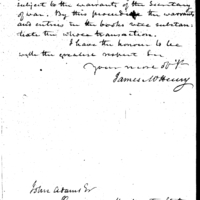 subject to the warrants of the Secretary
of war. By this procedure the warrants
and entries in the books
the whole transaction.
I have the honour to be
with the greatest respect
Your most
James McHenry
John Adams